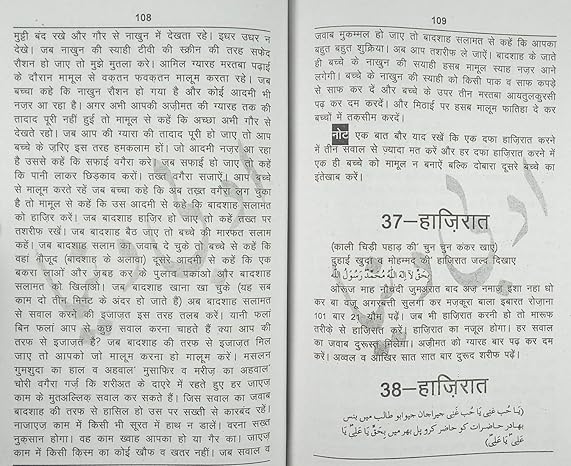 108
मुट्ठी बंद रखे और गौर से नाखुन में देखता रहे। इधर उधर न
देखे। जब नाखुन की स्याही टीवी की स्क्रीन की तरह सफेद
रौशन हो जाए तो मुझे मुतला करे। आमिल ग्यारह मरतबा पढ़ाई
के दौरान मामूल से वक़्तन फवक़्तन मालूम करता रहे। जब
बच्चा कहे कि नाखुन रौशन हो गया है और कोई आदमी भी
नज़र आ रहा है। अगर अभी आपकी अज़ीमत की ग्यारह तक की
तादाद पूरी नहीं हुई तो मामूल से कहें कि अच्छा अभी गौर से
देखते रहो। जब आप की ग्यारा की तादाद पूरी हो जाए तो आप
बच्चे के ज़रिए इस तरह हमकलाम हों। जो आदमी नज़र आ रहा
है उससे कहें कि सफाई वगैरा करे। जब सफाई हो जाए तो कहें
कि पानी लाकर छिड़काव करो। तख्त वगैरा सजाएें। आप बच्चे
से मालूम करते रहें जब बच्चा कहे कि अब तख़्त वगैरा लग चुका
है तो मामूल से कहें कि उस आदमी से कहें कि बादशाह सलामत
को हाज़िर करें। जब बादशाह हाज़िर हो जाए तो कहें तख़्त पर
तशरीफ रखें। जब बादशाह बैठ जाए तो बच्चे की मारफत सलाम
कहें। जब बादशाह सलाम का जवाब दे चुके तो बच्चे से कहें कि
वहां मौजूद (बादशाह के अलावा) दूसरे आदमी से कहें कि एक
बकरा लाओं और ज़बह कर के पुलाव पकाओ और बादशाह
सलामत को खिलाओ। जब बादशाह खाना खा चुके (यह सब
काम दो तीन मिनट के अंदर हो जाते हैं) अब बादशाह सलामत
से सवाल करने की इजाज़त इस तरह तलब करें। यानी फलां
बिन फलां आप से कुछ सवाल करना चाहते हैं क्या आप की
तरफ से इजाज़त है? जब बादशाह की तरफ से इजाज़त मिल
जाए तो आपको जो मालूम करना हो मालूम करें। मसलन
गुमशुदा का हाल व अहवाल मुसाफिर व मरीज़ का अहवाल
चोरी वगैरा गर्ज़ कि शरीअत के दाएरे में रहते हुए हर जाएज़
काम के मुतअल्लिक़ सवाल कर सकते हैं। जिस सवाल का जवाब
बादशाह की तरफ से हासिल हो उस पर सख्ती से कारबंद रहें।
नाजाएज़ काम में किसी भी सूरत में हाथ न डालें। वरना सख्त
नुक़सान होगा। वह काम ख्वाह आपका हो या गैर का। जाएज़
काम में किसी क़िस्म का कोई खौफ व खतर नहीं। जब सवाल व
109
जवाब मुकम्मल हो जाए तो बादशाह सलामत से कहें कि आपका
बहुत बहुत शुक्रिया। अब आप तशरीफ ले जाएें। बादशाह के जाते
ही बच्चे के नाखुन की सयाही हसब मामूल स्याह नज़र आने
लगेगी। बच्चे के नाखुन की स्याही को किसी पाक व साफ कपड़े
से साफ कर दें और बच्चे के उपर तीन मरतबा आयतुलकुरसी
पढ़ कर दम करदें। और मिठाई पर हसब मालूम फातिहा दे कर
बच्चों में तक़सीम करदें।
नोट एक बात बौर याद रखें कि एक दफा हाज़िरात करने
में तीन सवाल से ज़्यादा मत करें और हर दफा हाज़िरात करने में
एक ही बच्चे को मामूल न बनाऐं बल्कि दोबारा दूसरे बच्चे का
इंतेखाब करें।
37–हाज़िरात
(काली चिड़ी पहाड़ की चुन चुन कंकर खाए)
दुहाई खुदा व मोहम्मद की हाज़िरात जल्द दिखाए
بِحَقِّ لَا اِلٰهَ اِلَّا اللّٰهُ مُحَمَّدٌ رَّسُوْلُ اللّٰهِ
ओरूज माह नौचंदी जुमअरात बाद अज़ नमाज़ इशा नहा धो
कर बा वज़ू अगरबत्ती सुलगा कर मज़कूरा बाला इबारत रोज़ाना
101 बार 21 यौम पढ़ें। जब भी हाज़िरात करनी हो तो मारूफ
तरीक़े से हाज़िरात करें। हाज़िरात का नज़ूल होगा। हर सवाल
का जवाब दुरूस्त मिलेगा। अज़ीमत को ग्यारह बार पढ़ कर दम
करें। अव्वल व आखिर सात सात बार दुरूद शरीफ पढ़ें।
38–हाज़िरात